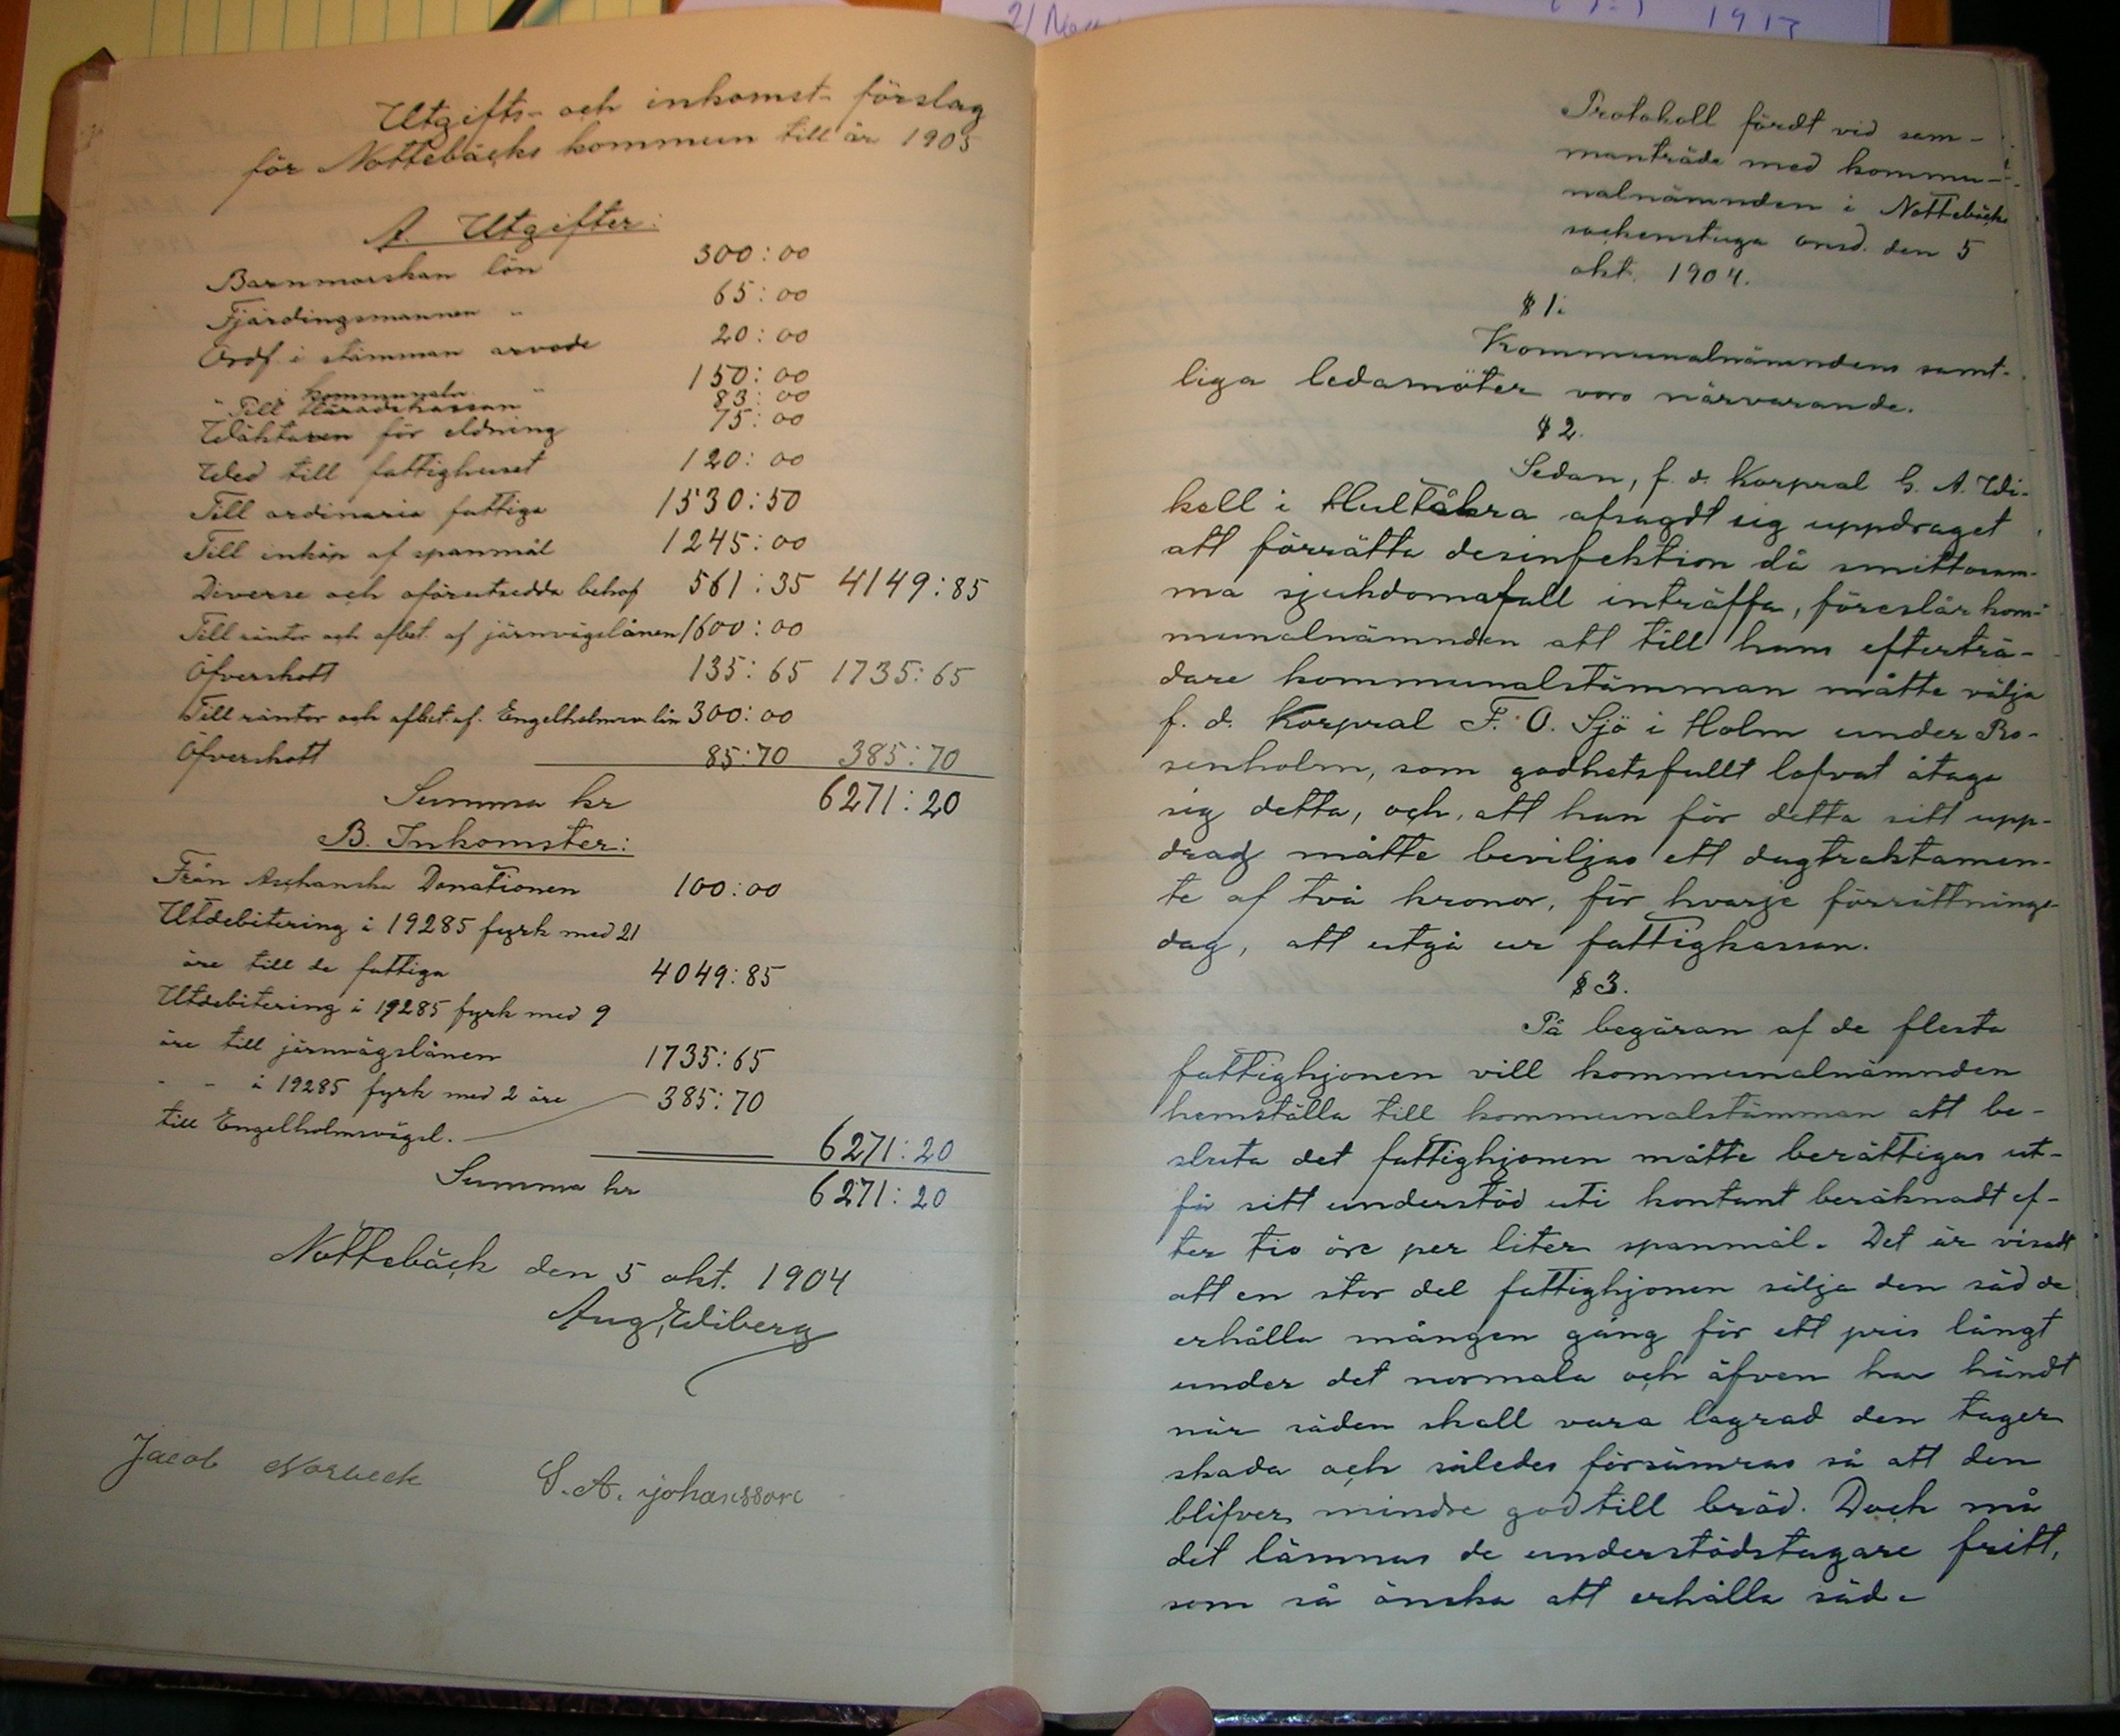 2/ Nott
1917
Utgifts- och inkomst- förslag
för Nottebäcks kommun till år 1905
A. Utgifter:
Barnmorskan lön 300:00
Fjärdingsmannen " 65:00
Ordf. i stämman arvode 20:00
" i kommunaln. " 150:00
Till Häradskassan 83:00
Wäktaren för eldning 75:00
Wed till fattighuset 120:00
Till ordinaria fattiga 1530:50
Till inköp af spanmål 1245:00
Diverse och oförutsedda behof 561:35 4149:85
Till räntor och afbet. af järnvägslånen 1600:00
Öfverskott 135:65 1735:65
Till räntor och afbet. af. Engelholms lån 300:00
Öfverskott 85:70 385:70
Summa kr 6271:20
B. Inkomster:
Från Aschanska Donationen 100:00
Utdebitering i 19285 fyrk med 21
öre till de fattiga 4049:85
Utdebitering i 19285 fyrk med 9
öre till järnvägslånen 1735:65
- - i 19285 fyrk med 2 öre 385:70
till Engelholmsvägsl.
6271:20
Summa kr 6271:20
Nottebäck den 5 okt. 1904
Aug. Wiberg
Jacob Norbeck S. A. johansson
Protokoll fördt vid sam-
manträde med kommu-
nalnämnden i Nottebäcks
sockenstuga onsd. den 5
okt. 1904.
§ 1.
Kommunalnämndens samt-
liga ledamöter voro närvarande.
§ 2.
Sedan, f. d. Korpral G. A. Wi-
kell i Hultåkra afsagdt sig uppdraget
att förrätta desinfektion då smittosam-
ma sjukdomafall inträffa, föreslår kom-
munalnämnden att till hans efterträ-
dare kommunalstämman måtte välja
f. d. Korpral F. O. Sjö i Holm under Ro-
senholm, som godhetsfullt lofvat åtaga
sig detta, och, att han för detta sitt upp-
drag måtte beviljas ett dagtraktamen-
te af två kronor, för hvarje förrättnings-
dag, att utgå ur fattigkassan.
§ 3.
På begäran af de flesta
fattighjonen vill kommunalnämnden
hemställa till kommunalstämman att be-
sluta det fattighjonen måtte berättigas ut-
få sitt understöd uti kontant beräknadt ef-
ter tio öre per liter spanmål. Det är visadt
att en stor del fattighjonen sälja den säd de
erhålla mången gång för ett pris långt
under det normala och äfven har händt
när säden skall vara lagrad den tager
skada och således försämras så att den
blifver mindre god till bröd. Dock må
det lämnas de understödstagare fritt,
som så önska att erhålla säd.